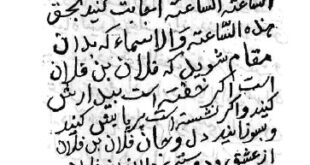 الساعته الساعته اغابت کنید بحق
هذه الساعته والاسماء که بدان
مقام شوید که فلان بن فلان
است اکر خفته است بیدارش
کنید واکر نشسته است برپایش کنید
وبسوزانید دل وجان فلان بن فلان
ازعشق